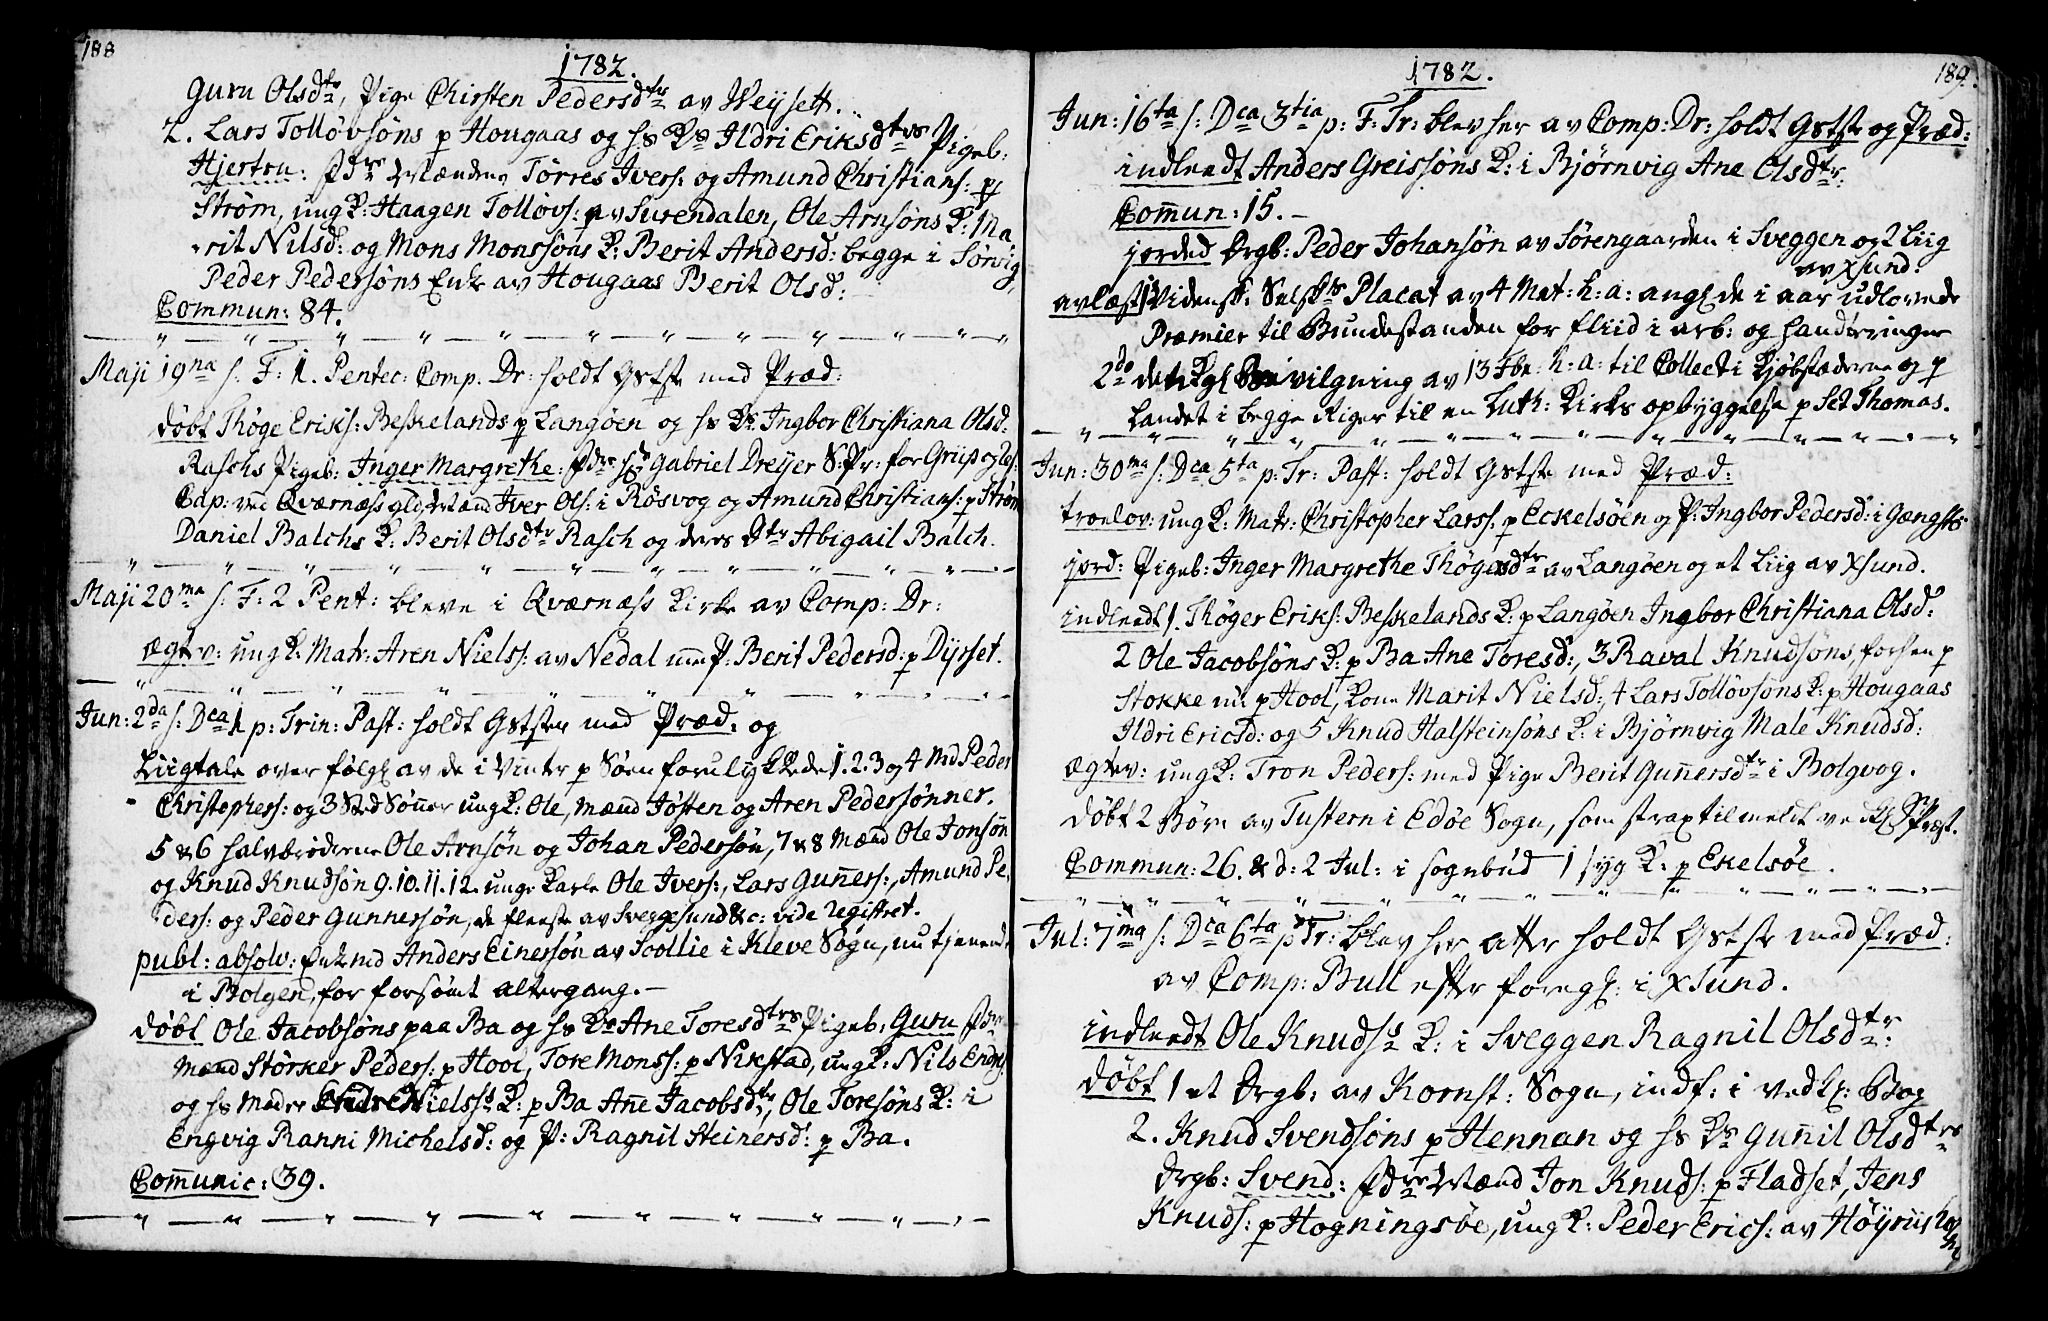 188
1782.
Guru Olsdtr, Pige Chirsten Pedersdtr av Weysett.
2. Lars Tolløvsøns p Hougaas og hs Ks Ildri Eriksdtrs Pigeb:
Hjertru: fdre Mændene Torres Ivers: og Amund Christians: p
Strøm, ung K: Haagen Tollovs: av Surendalen, Ole Arnsøns K: Ma
rit Nilsd: og Mons Monssøns K: Berit Andersd: begge i Sørvig,
Peder Pedersøns Enke av Hougaas Berit Olsd:
Commun: 84.
Maji 19na s: F: 1. Pentec: Comp. Dr: holdt Gstste med Præd:
døbt Thøge Eriks: Beskelands p Langøen og hs Ks Ingbor Christiana Olsd:
Raschs Pigeb: Inger Margrethe: fdre Hr Gabriel Dreyer S:Pr: for Griip og
Cap: ved Qværnæss gld, Mænd Iver Ols: i Røsvog og Amund Christians: p Strøm
Daniel Balchs K: Berit Olsdtr Rasch og deres Dtr Abigail Balch.
Maji 20ma s: F: 2 Pent: bleve i Qværnæss Kirke av Comp: Dr:
ægtev: ung K: Matr: Aren Niels: av Nedal med P: Berit Pedersd: p Dyrset.
Jun: 2da s: Dca 1 p: Trin: Past: holdt Gststen med Præd: og
Liigtale over følgl av de i Vinter p Søen forulykkede 1. 2. 3 og 4 Md Peder
Christophers: og 3 Sted Sønner ung K: Ole, Mænd Jøsten og Aren Pedersønner.
5 & 6 halvbrødrene Ole Arnsøn og Johan Pedersøn, 7 & 8 Mænd Ole Jonsøn
og Knud Knudsøn 9. 10. 11. 12. unge Karle Ole Ivers:, Lars Gunners:, Amund Pe
ders: og Peder Gunnersøn, de fleeste av Sveggesund &c: vide Registret.
publ: absolv: Enkmd Anders Einersøn av Scollie i Kleve Sogn, nu tjenende
i Bolgen, for forsømt altergang.
døbt Ole Jacobsøns paa Ba og hs Ks Ane Toresdtrs Pigeb: Guru fdre
Mænd Størker Peders: p Hool, Tore Monss: p Nikstad, ung K: Nils Endrs:
og hs Moder Endre Nielss: K: p Ba Ane Jacobsdtr, Ole Toresøns K: i
Engvig Ranni Michelsd: og P: Ragnil Steinersd: p Ba.
Communic: 39.
1782.
189.
Jun: 16ta s: Dca 3tia p: F: Tr: blev her av Comp: Dr: holdt Gstste og Præd:
indleedt Anders Greissøns K: i Bjørnvig Ane Olsdtr:
Commun: 15.
jorded Drgb: Peder Johansøn av Sørengaarden i Sveggen og 2 Liig
av Xsund:
avlæst 1 Vidensk: Selsks Placat av 4 Mat: h: a: angl de i aar udlovede
Præmier til Bundestanden for fliid i arb: og handteringer
2do det Kgl Bevilgning av 13 Fbr: h: a: til Collect i Kjøbstæderne og p
Landet i begge Riger til en Luth: Kirkes opbyggelse p Sct Thomas.
Jun: 30ma s: Dca 5ta p: Tr: Past: holdt Gstste med Præd:
troelov: ung K: Matr: Christopher Larss: p Eckelsøen og P: Ingbor Pedersd: i Gængst:
jord: Pigeb: Inger Margrethe Thøgesdtr av Langøen og et Liig av Xsund.
indleedt 1. Thøger Eriks: Beskelands K: p Langøen Ingbor Christiana Olsd:
2 Ole Jacobsøns K: p Ba Ane Toresd:, 3 Raval Knudsøns, forhen p
Stokke nu p Hool, Kone Marit Nielsd:, 4 Lars Tolløvsøns K: p Hougaas
Ildri Ericsd: og 5 Knud Halsteinsøns K: i Bjørnvig Male Knudsd:
ægtev: ung K: Tron Peders: med Pige Berit Gunersdtr i Bolgvog.
døbt 2 Børn av Tustern i Edøe Sogn, som strax tilmeldt vedk: S:Præst.
Commun: 26. & d: 2 Jul: i Sognebud 1 syg K: p Ekelsøe.
Jul: 7ma s: Dca 6ta p Tr: blev her atter holdt Gstste med Præd:
av Comp: Bull efter foregl: i Xsund.
indleedt Ole Knudss K: i Sveggen Ragnil Olsdtr:
døbt 1 et Drgb: av Kornst: Sogn, indf: i vedk: Bog
2. Knud Svendsøns p Hennan og hs Ks Gunil Olsdtrs
Drgb: Svend: fdre Mænd Jon Knuds: p Fladset, Jens
Knuds: p Hogningsøe, ung K: Peder Erics: av Høyriis